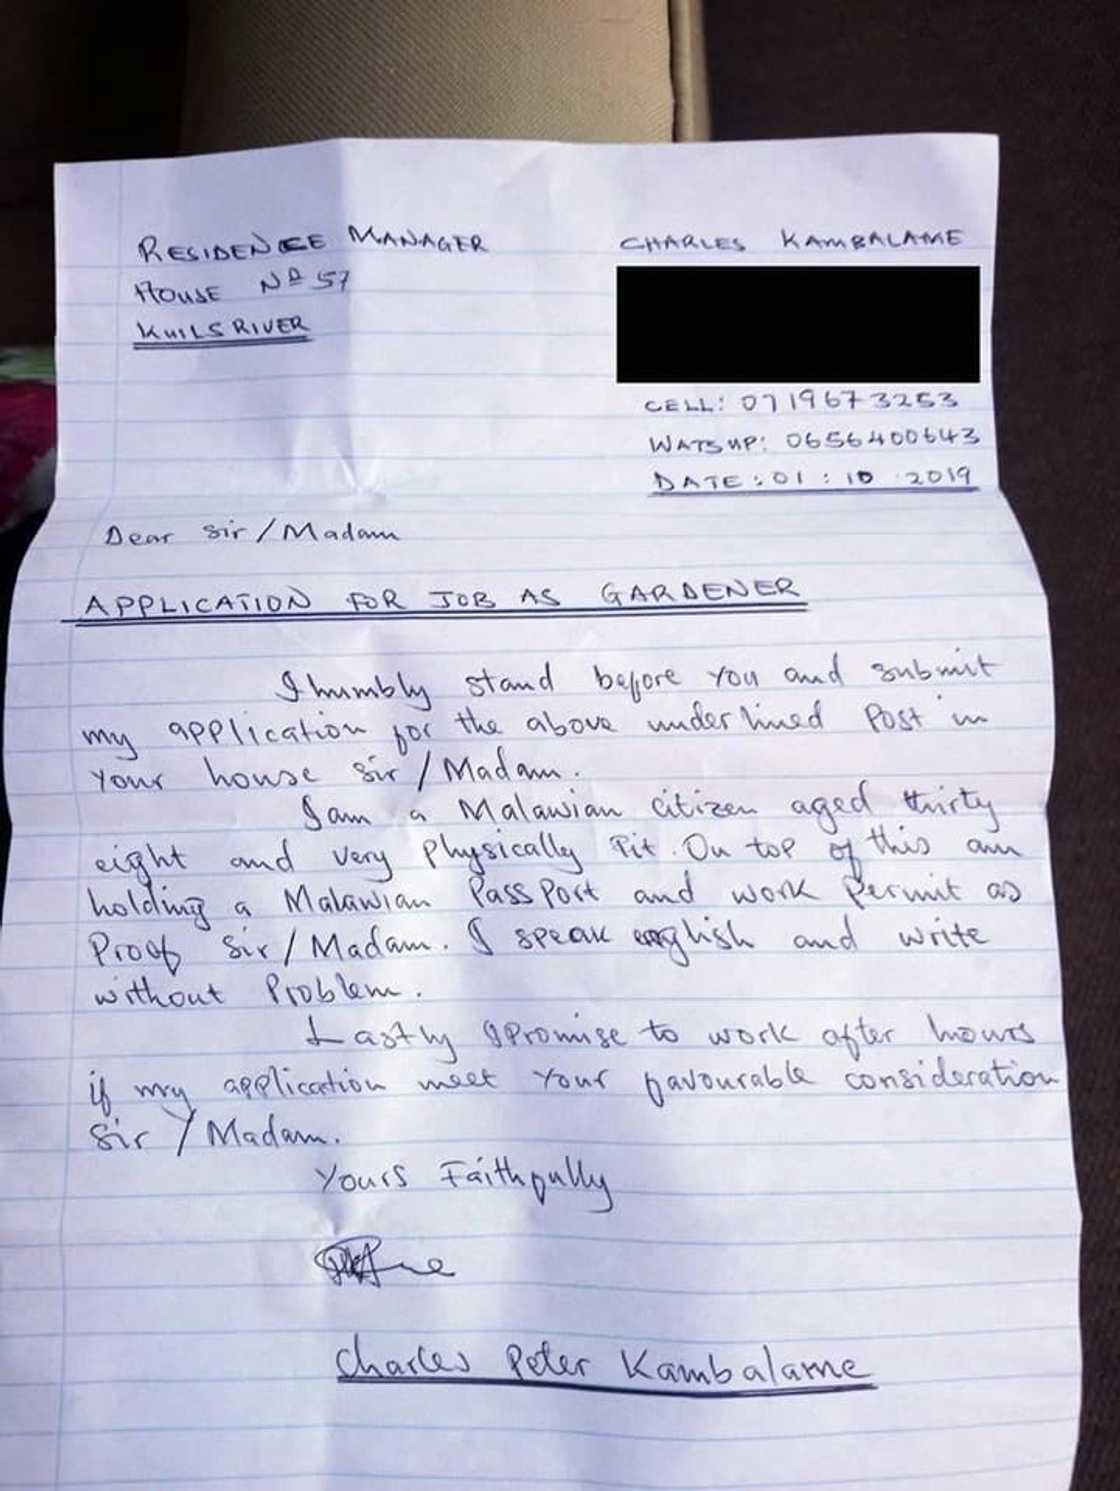 RESIDENCE MANAGER
HOUSE No 57
KUILSRIVER
CHARLES KAMBALAME
CELL: 0719673253
WATSUP: 0656400643
DATE: 01 : 10 2019
Dear Sir/Madam
APPLICATION FOR JOB AS GARDENER
I humbly stand before you and submit
my application for the above underlined Post in
your house sir/Madam.
I am a Malawian citizen aged thirty
eight and very Physically Fit. On top of this am
holding a Malawian PassPort and work Permit as
Proof Sir/Madam. I speak english and write
without Problem.
Lastly I Promise to work after hours
if my application meet your favourable consideration
Sir/Madam.
Yours Faithfully
Charles Peter Kambalame